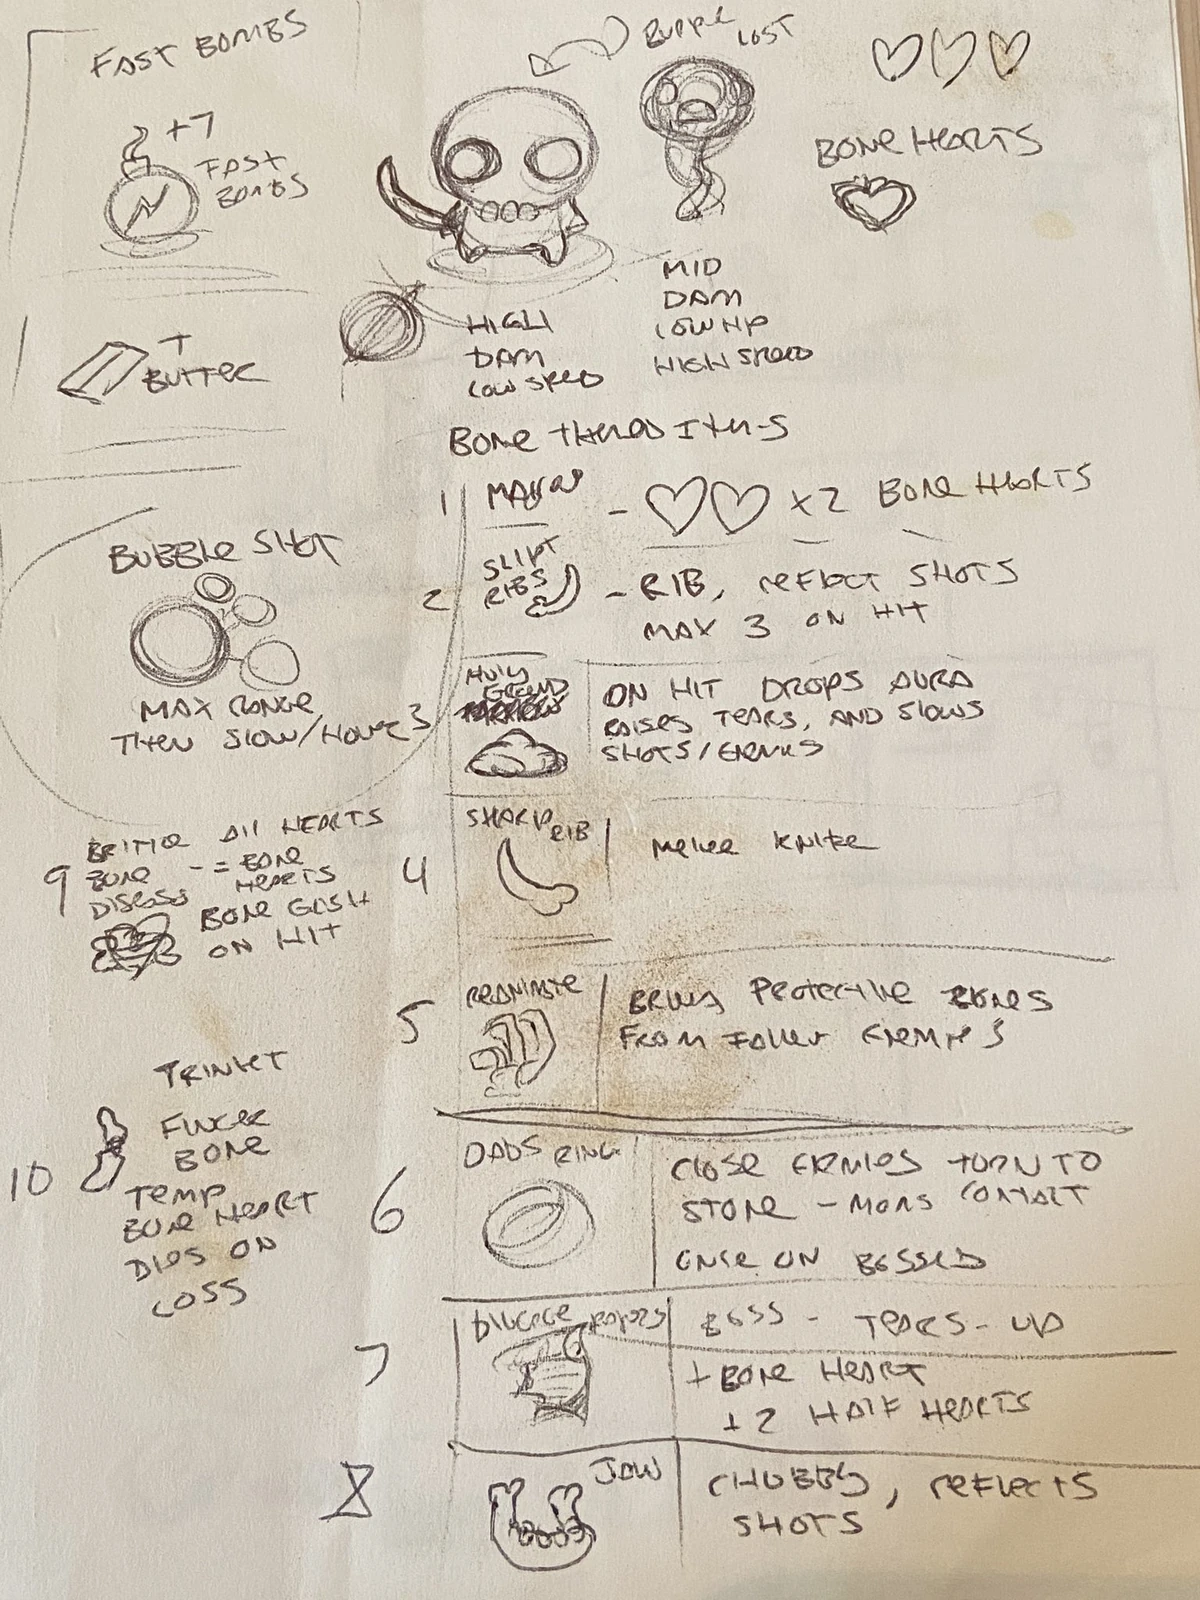 FAST BOMBS
+7
FAST
BOMBS
+
BUTTER
BUBBLE SHOT
MAX RANGE
THEN SLOW/HOME
PURPLE LOST
BONE HEARTS
HIGH
DAM
LOW SPEED
MID
DAM
LOW HP
HIGH SPEED
BONE THEMED ITEMS
1 MARROW - x2 BONE HEARTS
2 SLIPT
RIBS - RIB, REFLECT SHOTS
MAX 3 ON HIT
3 HOLY
GROUND
ON HIT DROPS AURA
RAISES TEARS, AND SLOWS
SHOTS/ENEMIES
4 SHARP RIB
MELEE KNIFE
5 REANIMATE
BRINGS PROTECTIVE BONES
FROM FALLEN ENEMIES
6 DADS RING
CLOSE ENMIES TURN TO
STONE - MOMS CONTACT
ONCE ON BOSSES
7 DIVORCE PAPERS
BOSS - TEARS - UP
+ BONE HEART
+ 2 HALF HEARTS
8 JAW
CHUBBY, REFLECTS
SHOTS
9 BRITTLE
BONE
DISEASE
ALL HEARTS
- = BONE
HEARTS
BONE GUSH
ON HIT
10 TRINKET
FINGER
BONE
TEMP
BONE HEART
DIES ON
LOSS